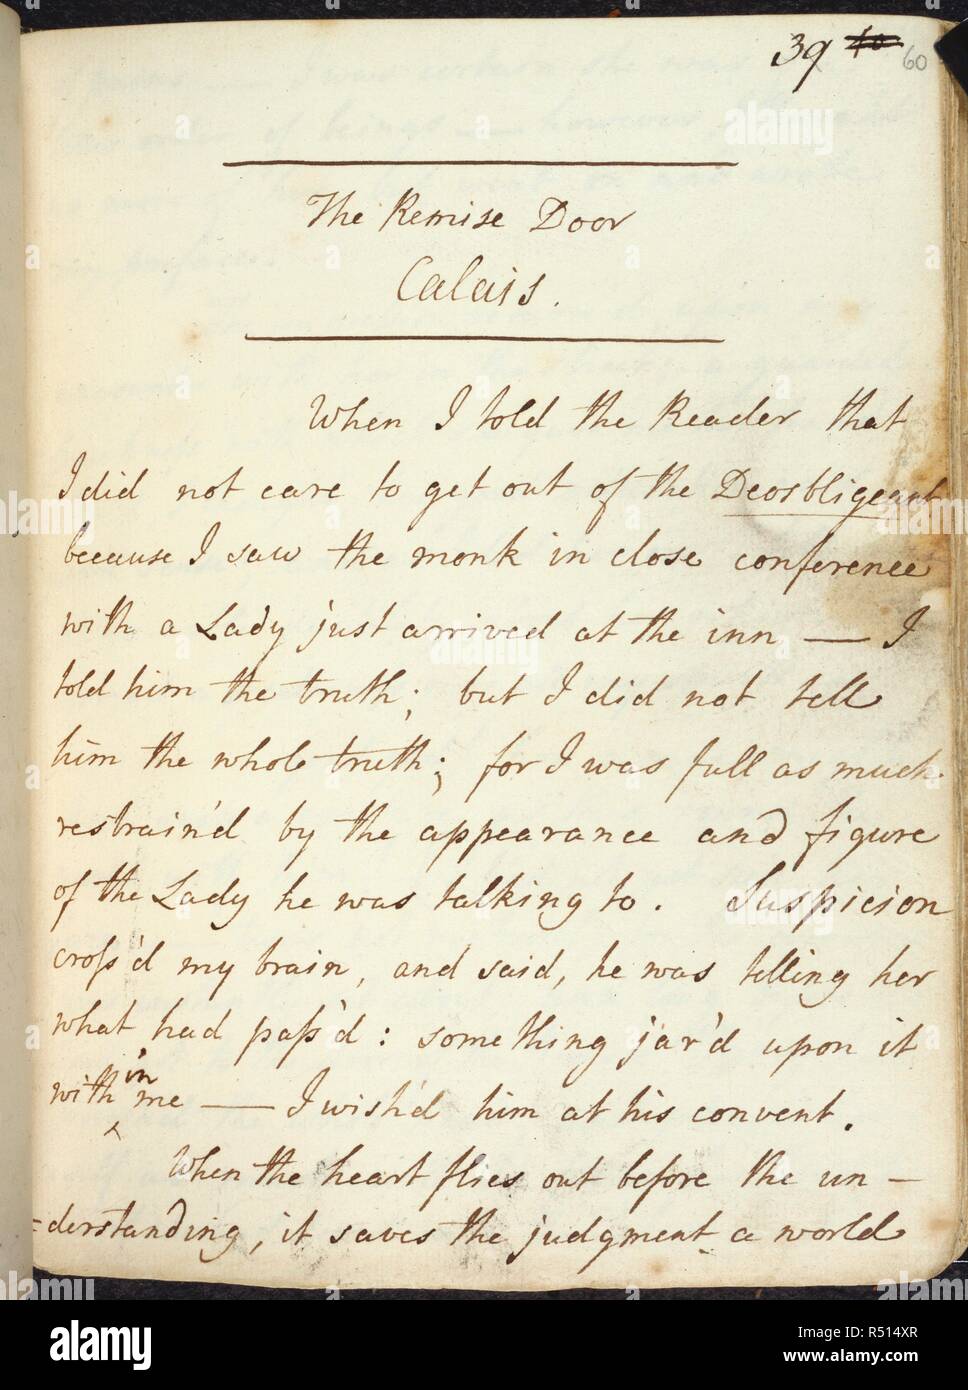 39 40 60
The Remise Door
Calais.
When I told the Reader that
I did not care to get out of the Desobligeant
because I saw the monk in close conference
with a Lady just arrived at the inn — I
told him the truth; but I did not tell
him the whole truth; for I was full as much
restrain'd by the appearance and figure
of the Lady he was talking to. Suspicion
cross'd my brain, and said, he was telling her
what had pass'd: something jar'd upon it
within me — I wish'd him at his convent.
When the heart flies out before the un-
=derstanding, it saves the judgment a world
alamy
Image ID: R514XR
www.alamy.com